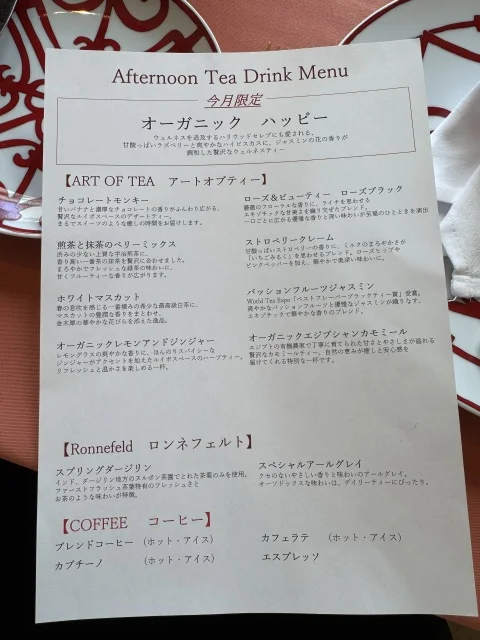 Afternoon Tea Drink Menu
今月限定
オーガニック　ハッピー
ウェルネスを追及するハリウッドセレブにも愛される。
甘酸っぱいラズベリーと爽やかなハイビスカスに、ジャスミンの花の香りが
調和した贅沢なウェルネスティー
【ART OF TEA　アートオブティー】
チョコレートモンキー
甘いバナナと濃厚なチョコレートの香りがふんわり広がる、
贅沢なルイボスベースのデザートティー。
まるでスイーツのような癒しの時間をお届けします。
煎茶と抹茶のベリーミックス
渋みの少ない上質な宇治煎茶に、
香り高い一番茶の抹茶を贅沢に合わせました。
まろやかでフレッシュな緑茶の味わいに、
甘くフルーティーな香りが広がります。
ホワイトマスカット
春の息吹を感じる一番摘みの希少な最高級白茶に、
マスカットの豊潤な香りをまとわせ、
金木犀の華やかな花びらを添えた逸品。
オーガニックレモンアンドジンジャー
レモングラスの爽やかな香りに、ほんのりスパイシーな
ジンジャーがアクセントを加えたルイボスベースのハーブティー。
リフレッシュと温かさを楽しめる一杯。
ローズ＆ビューティー　ローズブラック
薔薇のフローラルな香りに、ライチを思わせる
エキゾチックな甘美さを織り交ぜたブレンド。
一口ごとに広がる優雅な香りと深い味わいが至福のひとときを演出
ストロベリークレーム
甘酸っぱいストロベリーの香りに、ミルクのまろやかさが
「いちごみるく」を思わせるブレンド。ローズヒップや
ピンクペッパーを加え、華やかで奥深い味わいに。
パッションフルーツジャスミン
World Tea Expo「ベストフレーバーブラックティー賞」受賞。
爽やかなパッションフルーツと優雅なジャスミンが織りなす、
エキゾチックで華やかな香りのブレンド。
オーガニックエジプシャンカモミール
エジプトの有機農家で丁寧に育てられた甘さとやさしさが溢れる
贅沢なカモミールティー。自然の恵みが癒しと安心感を
届けてくれる特別な一杯です。
【Ronnefeld　ロンネフェルト】
スプリングダージリン
インド、ダージリン地方のヌルボン茶園でとれた茶葉のみを使用。
ファーストフラッシュ茶葉特有のフレッシュさと
お茶のような味わいが特徴。
スペシャルアールグレイ
クセのないやさしい香りと味わいのアールグレイ。
オーソドックスな味わいは、デイリーティーにぴったり。
【COFFEE　コーヒー】
ブレンドコーヒー　（ホット・アイス）
カプチーノ　（ホット・アイス）
カフェラテ　（ホット・アイス）
エスプレッソ